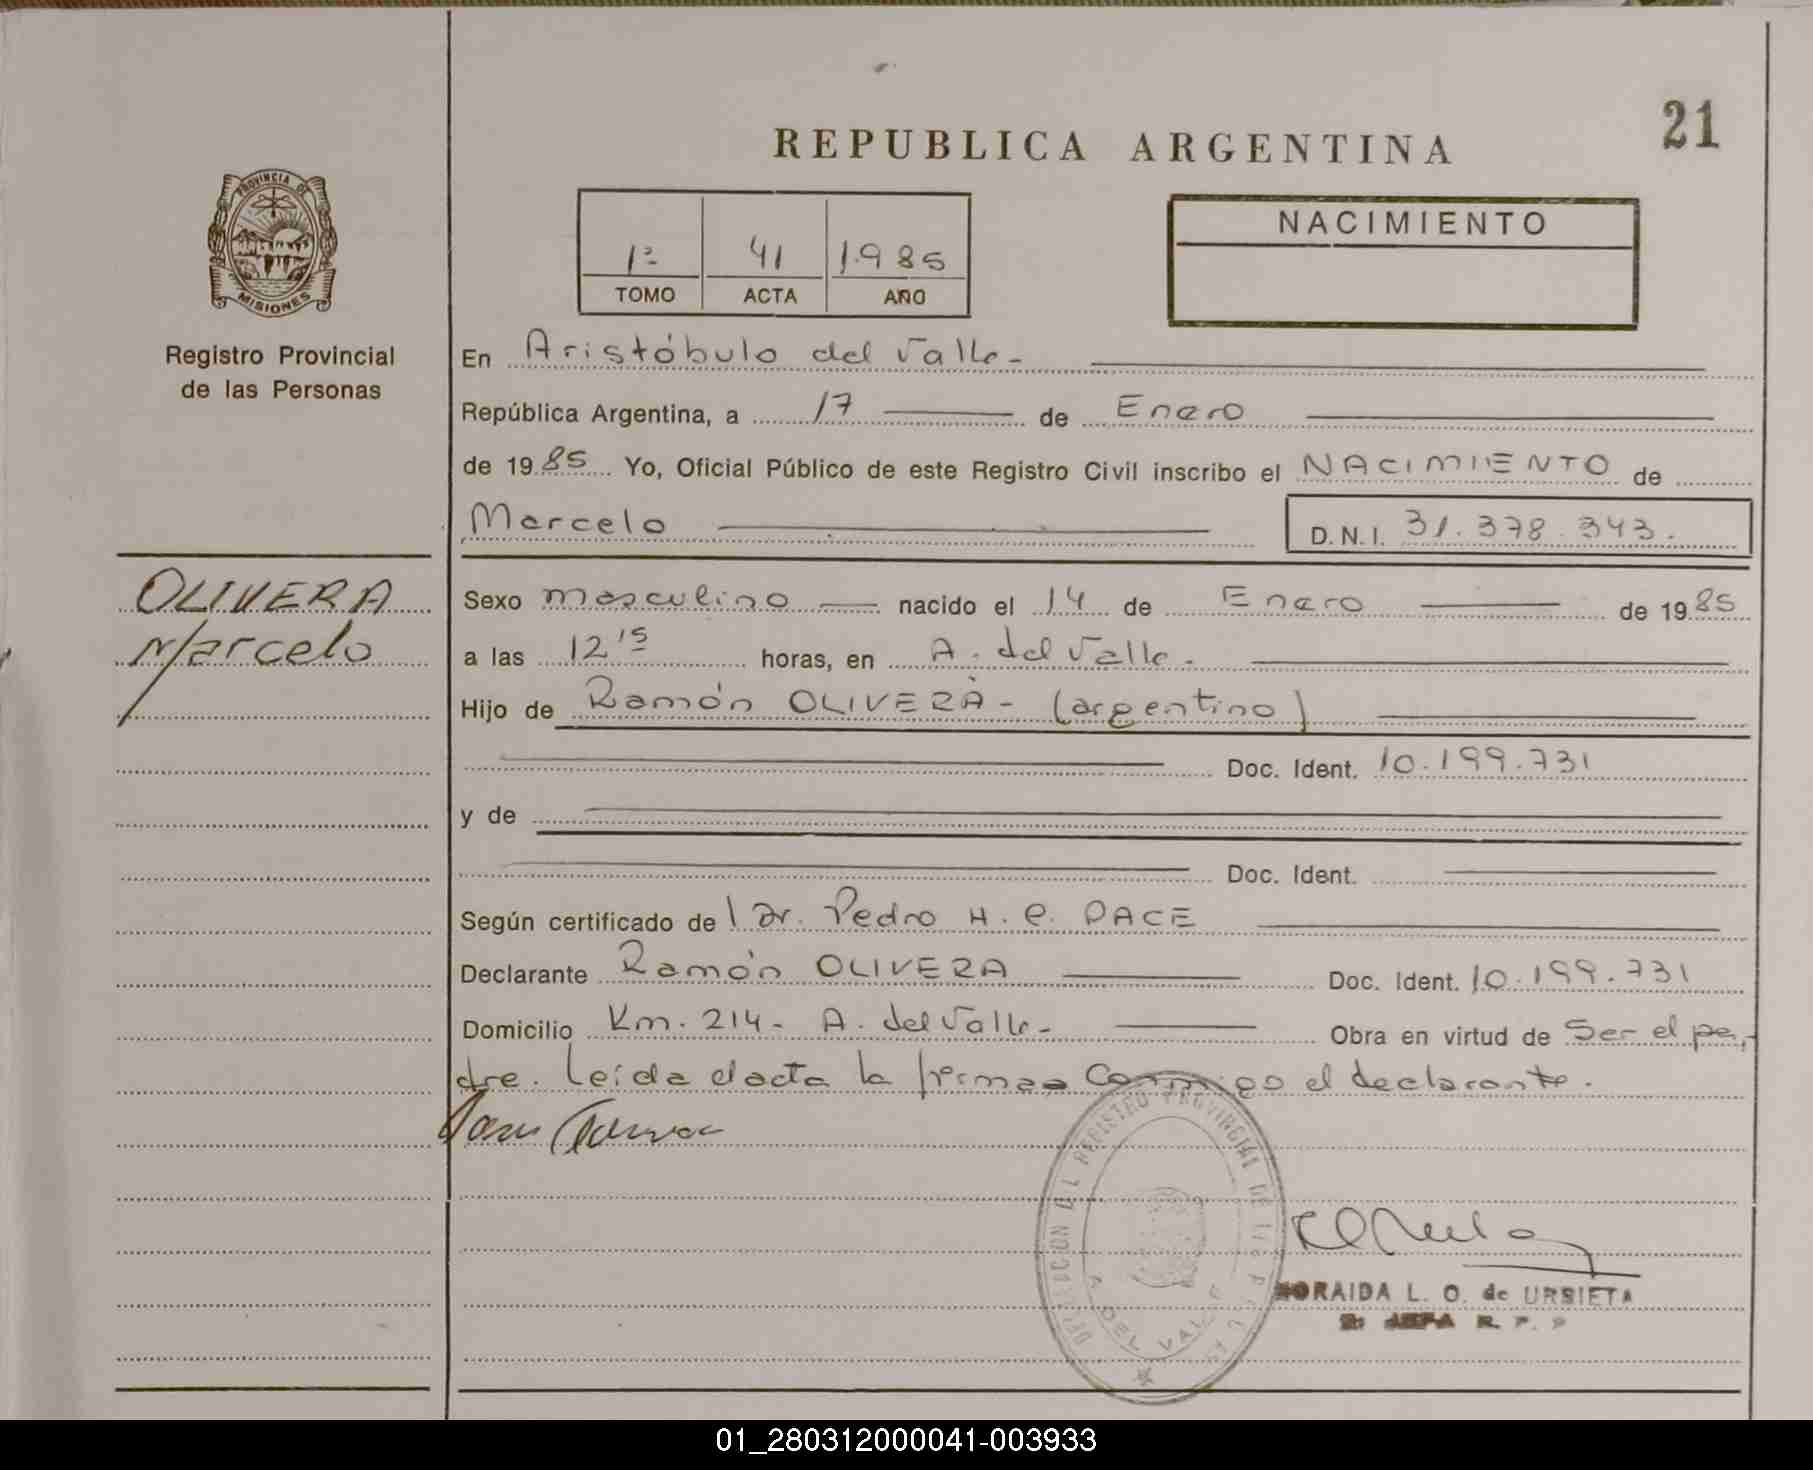 21
REPUBLICA ARGENTINA
PROVINCIA DE
MISIONES
Registro Provincial
de las Personas
1º 41 1.985
TOMO ACTA AÑO
NACIMIENTO
En Aristóbulo del Valle-
República Argentina, a 17 de Enero
de 1985 Yo, Oficial Público de este Registro Civil inscribo el NACIMIENTO de
Marcelo D.N.I. 31.378.343.
OLIVERA
Marcelo
Sexo masculino nacido el 14 de Enero de 1985
a las 12 15 horas, en A. del Valle.
Hijo de Ramón OLIVERA - (argentino)
Doc. Ident. 10.199.731
y de
Doc. Ident.
Según certificado de Dr. Pedro H. PACE
Declarante Ramón OLIVERA Doc. Ident. 10.199.731
Domicilio Km. 214- A. del Valle- Obra en virtud de Ser el pa-
dre. Leída el acta la firma conmigo el declarante.
DEL REGISTRO PROVINCIAL DE LAS
A. DEL VALLE
ZORAIDA L. O. de URBIETA
JEFA R. P.
01_280312000041-003933